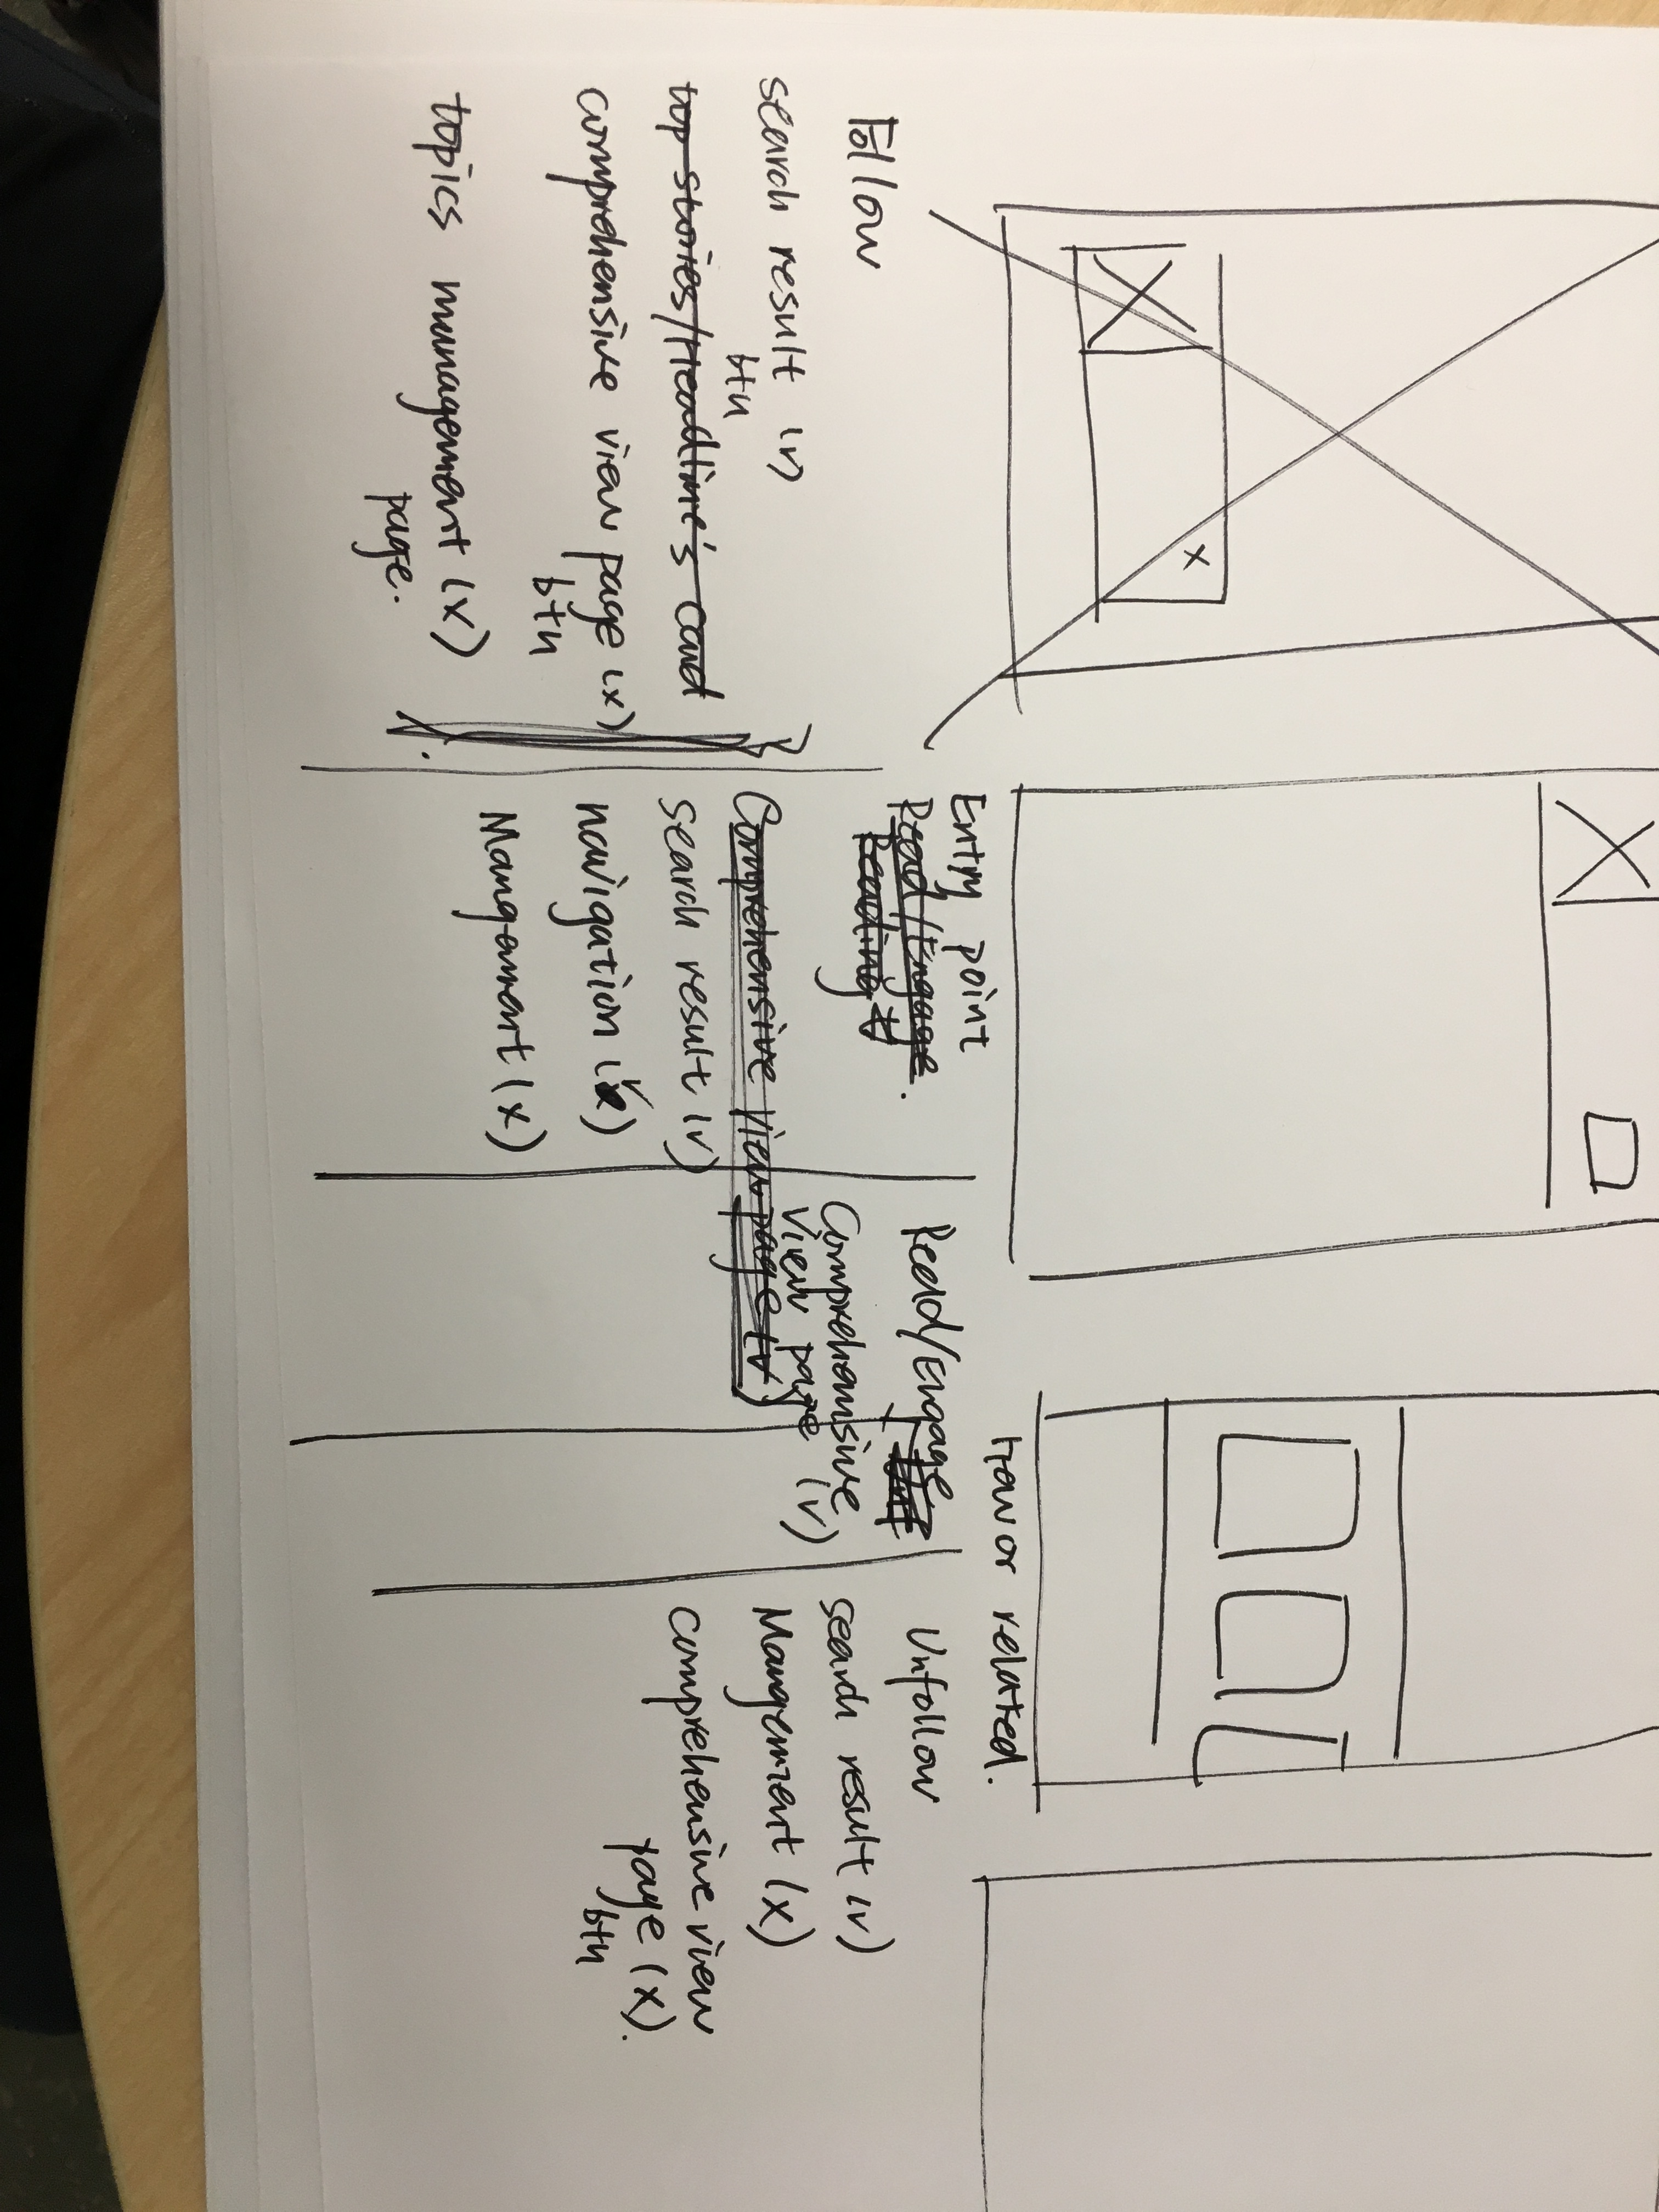 Follow
search result (v)
btn
top stories/Headline's card
comprehensive view page (x)
btn
topics management (x)
page.
Entry point
Read/Engage.
Reading
Comprehensive View page (v)
search result (v)
navigation
Mangement (x)
how or related.
Read/Engage
Comprehensive
view page (v)
Unfollow
search result (v)
Mangement (x)
comprehensive view
page (x).
btn
x